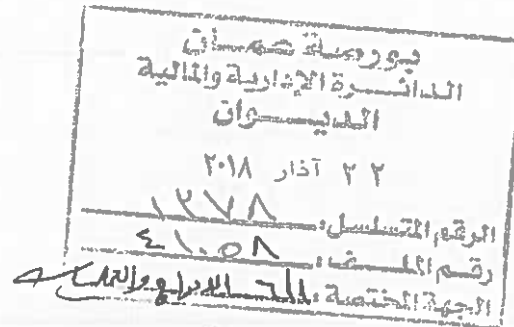 بورصة عمان
الدائرة الإدارية والمالية
الديوان
٢٢ آذار ٢٠١٨
الرقم المتسلسل: ١٢٧٨
رقم الملف: ٤١٠٥٨
الجهة المختصة: